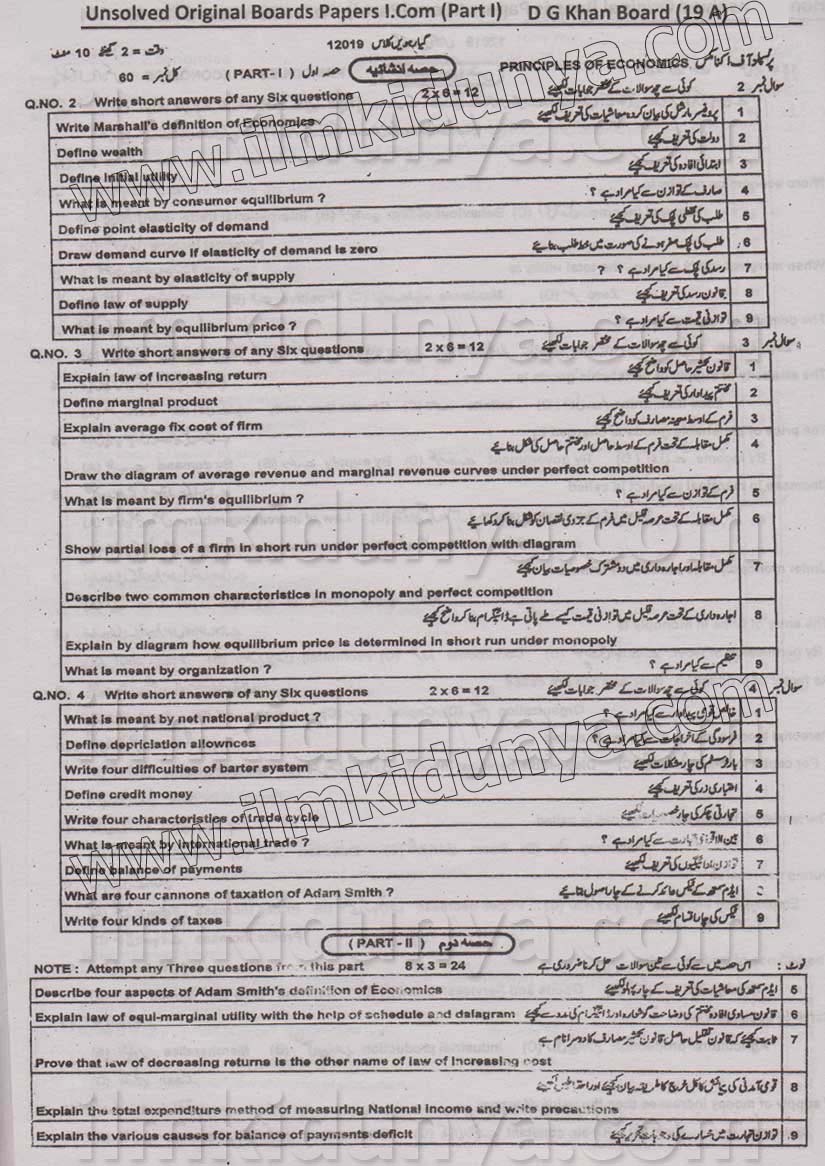 Unsolved Original Boards Papers I.Com (Part I) D G Khan Board (19 A)
وقت = 2 گھنٹے 10 منٹ 12019 گیارہویں کلاس
کل نمبر = 60 (PART-I) حصہ اول حصہ انشائیہ PRINCIPLES OF ECONOMICS پرنسپلز آف اکنامکس
Q.NO. 2 Write short answers of any Six questions 2 x 6 = 12 کوئی سے چھ سوالات کے مختصر جوابات لکھیئے سوال نمبر 2
Write Marshall's definition of Economics پروفیسر مارشل کی بیان کردہ معاشیات کی تعریف لکھیئے 1
Define wealth دولت کی تعریف کیجئے 2
Define initial utility ابتدائی افادہ کی تعریف کیجئے 3
What is meant by consumer equilibrium ? صارف کے توازن سے کیا مراد ہے ؟ 4
Define point elasticity of demand طلب کی نقطی لچک کی تعریف کیجئے 5
Draw demand curve if elasticity of demand is zero طلب کی لچک صفر ہونے کی صورت میں خط طلب بنائیے 6
What is meant by elasticity of supply رسد کی لچک سے کیا مراد ہے ؟ ? 7
Define law of supply قانون رسد کی تعریف کیجئے 8
What is meant by equilibrium price ? توازنی قیمت سے کیا مراد ہے ؟ 9
Q.NO. 3 Write short answers of any Six questions 2 x 6 = 12 کوئی سے چھ سوالات کے مختصر جوابات لکھیئے سوال نمبر 3
Explain law of increasing return قانون تکثیر حاصل کو واضح کیجئے 1
Define marginal product مختتم پیداوار کی تعریف کیجئے 2
Explain average fix cost of firm فرم کے اوسط معینہ مصارف کو واضح کیجئے 3
مکمل مقابلہ کے تحت فرم کے اوسط حاصل اور مختتم حاصل کی شکل بنائیے 4
Draw the diagram of average revenue and marginal revenue curves under perfect competition
What is meant by firm's equilibrium ? فرم کے توازن سے کیا مراد ہے ؟ 5
مکمل مقابلہ کے تحت عرصہ قلیل میں فرم کے جزوی نقصان کو شکل بنا کر دکھائیے 6
Show partial loss of a firm in short run under perfect competition with diagram
مکمل مقابلہ اور اجارہ داری میں دو مشترک خصوصیات بیان کیجئے 7
Describe two common characteristics in monopoly and perfect competition
اجارہ داری کے تحت عرصہ قلیل میں توازنی قیمت کیسے طے پاتی ہے ڈائیگرام بنا کر واضح کیجئے 8
Explain by diagram how equilibrium price is determined in short run under monopoly
What is meant by organization ? تنظیم سے کیا مراد ہے ؟ 9
Q.NO. 4 Write short answers of any Six questions 2 x 6 = 12 کوئی سے چھ سوالات کے مختصر جوابات لکھیئے سوال نمبر 4
What is meant by net national product ? خالص قومی پیداوار سے کیا مراد ہے ؟ 1
Define depriciation allownces فرسودگی کے اخراجات سے کیا مراد ہے ؟ 2
Write four difficulties of barter system بارٹر سسٹم کی چار مشکلات لکھیئے 3
Define credit money اعتباری زر کی تعریف کیجئے 4
Write four characteristics of trade cycle تجارتی چکر کی چار خصوصیات لکھیئے 5
What is meant by international trade ? بین الاقوامی تجارت سے کیا مراد ہے ؟ 6
Define balance of payments توازن ادائیگیوں کی تعریف کیجئے 7
What are four cannons of taxation of Adam Smith ? ایڈم سمتھ کے ٹیکس عائد کرنے کے چار اصول بتائیے
Write four kinds of taxes ٹیکس کی چار اقسام لکھیئے 9
(PART - II) حصہ دوم
NOTE : Attempt any Three questions from this part 8 x 3 = 24 اس حصہ میں سے کوئی سے تین سوالات حل کرنا ضروری ہے نوٹ :
Describe four aspects of Adam Smith's definition of Economics ایڈم سمتھ کی معاشیات کی تعریف کے چار پہلو لکھیئے 5
Explain law of equi-marginal utility with the help of schedule and daiagram قانون مساوی افادہ مختتم کی وضاحت گوشوارہ اور ڈائیگرام کی مدد سے کیجئے 6
ثابت کیجئے کہ قانون تقلیل حاصل قانون تکثیر مصارف کا دوسرا نام ہے 7
Prove that law of decreasing returns is the other name of law of increasing cost
قومی آمدنی کی پیمائش کا کل خرچ کا طریقہ بیان کیجئے اور احتیاطیں لکھیئے 8
Explain the total expenditure method of measuring National income and write precautions
Explain the various causes for balance of payments deficit توازن تجارت میں خسارے کی وجوہات تحریر کیجئے 9
www.ilmkidunya.com
www.ilmkidunya.com